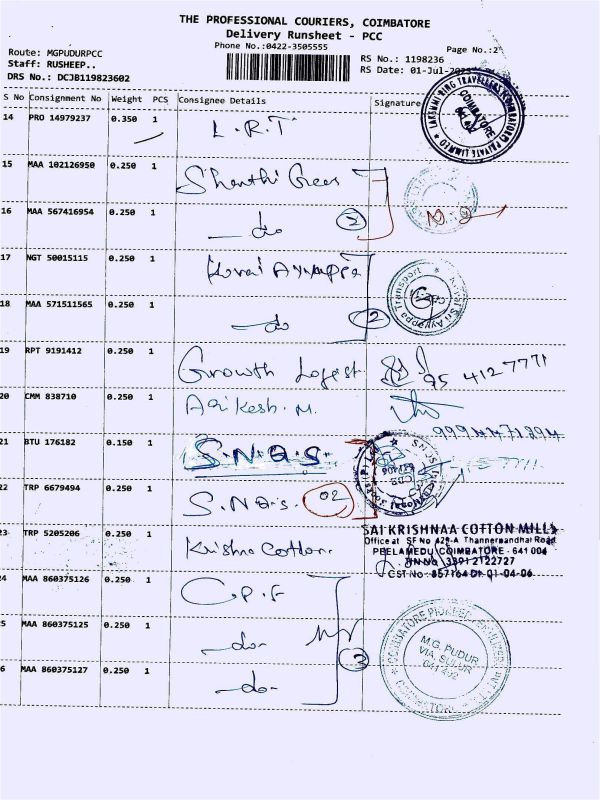 THE PROFESSIONAL COURIERS, COIMBATORE
Delivery Runsheet - PCC
Phone No.:0422-3505555
Page No.:2
Route: MGPUDURPCC
Staff: RUSHEEP..
DRS No.: DCJB119823602
RS No.: 1198236
RS Date: 01-Jul-
S No Consignment No Weight PCS Consignee Details Signature
14 PRO 14979237 0.350 1 L.R.T
COIMBATORE
15 MAA 102126950 0.250 1 Shanthi Gears
16 MAA 567416954 0.250 1 -do 2
17 NGT 50015115 0.250 1 Kovai Ayyappa
18 MAA 571511565 0.250 1 -do 2
Kovai Sri Ayyappa Transport
19 RPT 9191412 0.250 1 Growth Logest 95 412 7771
20 CMM 838710 0.250 1 Arikesh. M.
21 BTU 176182 0.150 1 S.N.Q.S.
22 TRP 6679494 0.250 1 S.N.Q.S. 02
23 TRP 5205206 0.250 1 Krishna Cotton.
SAI KRISHNAA COTTON MILLS
Office at SF No 429-A Thanneerpandhal Road
PEELAMEDU COIMBATORE - 641 004
TIN No 33912122727
CST No: 857164 Dt 01-04-06
24 MAA 860375126 0.250 1 C.P.F
5 MAA 860375125 0.250 1 -do-
6 MAA 860375127 0.250 1 -do- 3
M.G. PUDUR
VIA. SULUR
641 402